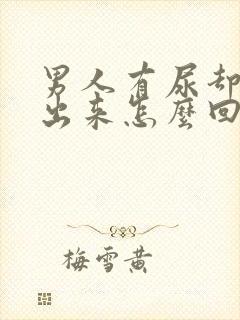 男人有尿却
出来怎麼回
梅雪黄